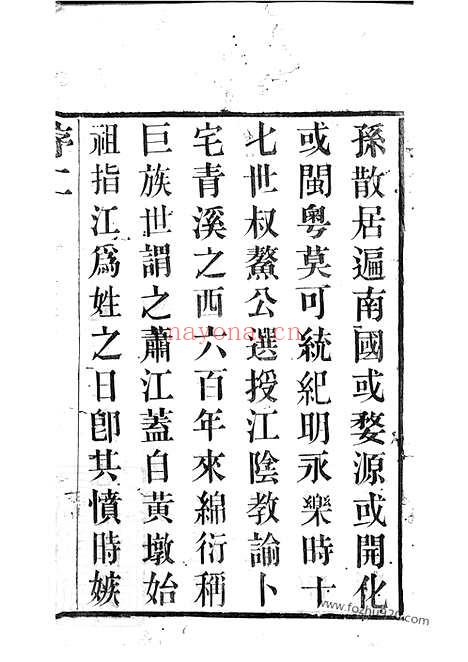 孫散居遍南國或婺源或開化
或閩粵莫可統紀明永樂時十
七世叔鰲公選授江陰教諭卜
宅青溪之西六百年來綿衍稱
巨族世謂之蕭江蓋自黃墩始
祖指江爲姓之日卽其憤時嫉
序二
nayona.cn
www.fozhu920.com